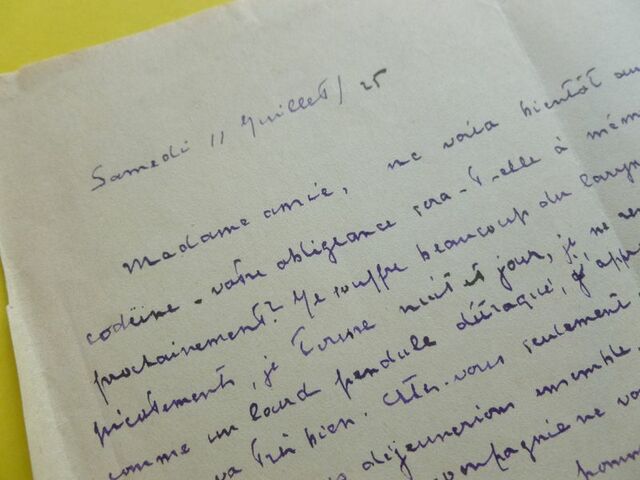 Samedi 11 Juillet / 25
Madame amie, me voici bientôt au
codéine - votre obligeance sera-t-elle à mêm
prochainement? Je souffre beaucoup du laryn
picotements, je tousse nuit et jour, je ne
comme un lourd pendule détraqué, j'app
va très bien. Etes-vous seulement
déjeunerions ensemble,
compagnie ne vo
pomm